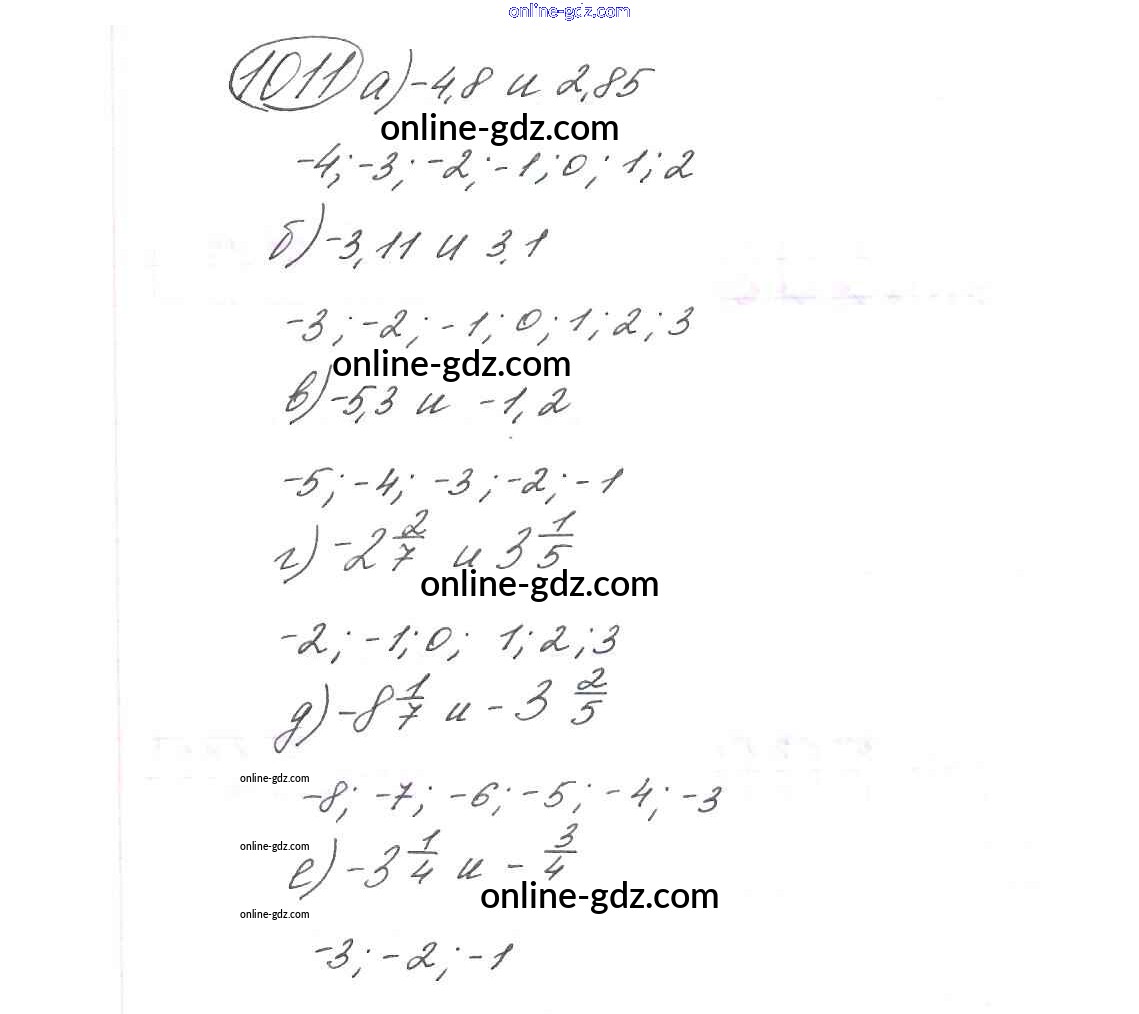 online-gdz.com
1011 а) -4,8 и 2,85
online-gdz.com
-4; -3; -2; -1; 0; 1; 2
б) -3,11 и 3,1
-3; -2; -1; 0; 1; 2; 3
online-gdz.com
в) -5,3 и -1,2
-5; -4; -3; -2; -1
г) -2 2/7 и 3 1/5
online-gdz.com
-2; -1; 0; 1; 2; 3
д) -8 1/7 и -3 2/5
online-gdz.com
-8; -7; -6; -5; -4; -3
online-gdz.com
е) -3 1/4 и - 3/4
online-gdz.com
online-gdz.com
-3; -2; -1